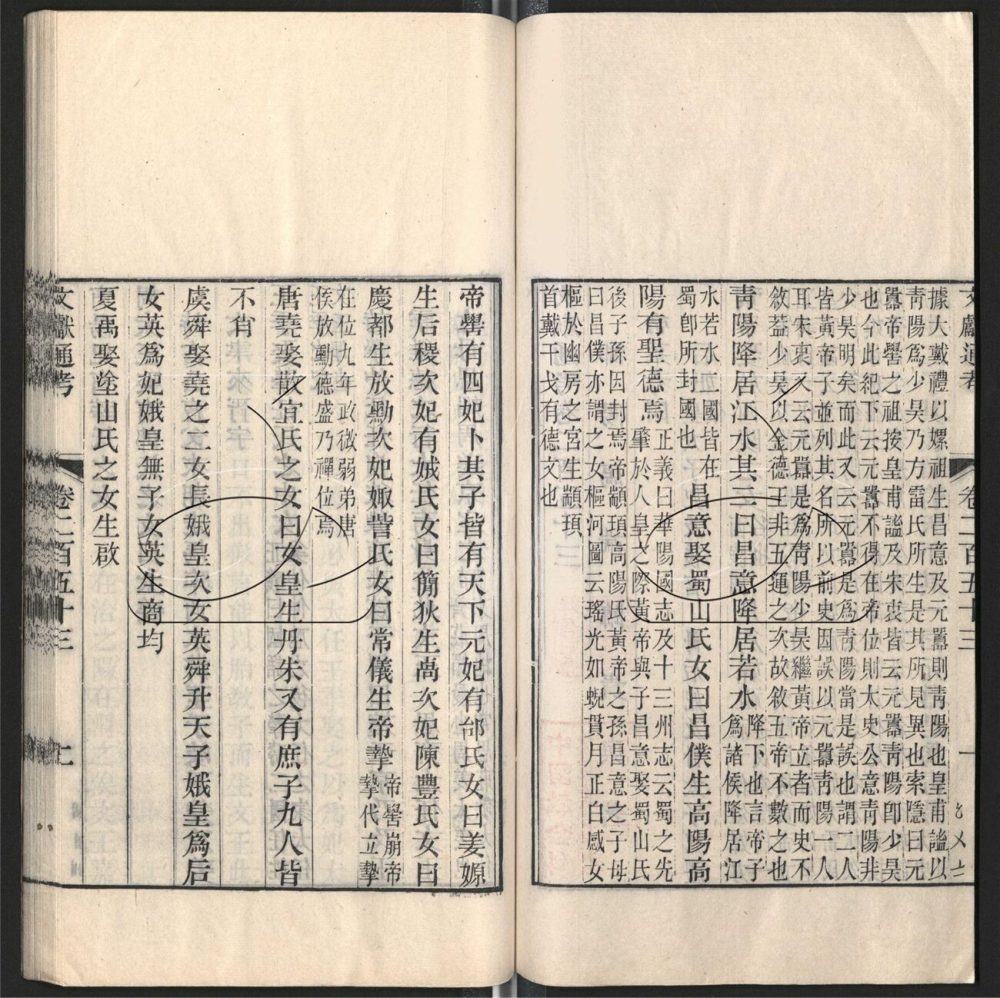 文獻通考 卷二百五十三 一
據大戴禮以嫘祖生昌意及元囂則靑陽也皇甫謐以
靑陽爲少昊乃方雷氏所生是其所見異也索隱曰元
囂帝嚳之祖按皇甫謐及宋衷皆云元囂靑陽卽少昊
也今此紀下云元囂不得在帝位則太史公意靑陽非
少昊明矣而此又云元囂是爲靑陽當是誤也謂二人
皆黃帝子並列其名所以前史因誤以元囂靑陽一人
耳宋衷又云元囂是爲靑陽少昊繼黃帝立者而史不
敘蓋少昊以金德王非五運之次故敘五帝不數之也
靑陽降居江水其三曰昌意降居若水
降下也言帝子
爲諸侯降居江
水若水二國皆在
蜀卽所封國也
昌意娶蜀山氏女曰昌僕生高陽高
陽有聖德焉
正義曰華陽國志及十三州志云蜀之先
肇於人皇之際黃帝與子昌意娶蜀山氏
後子孫因封焉帝顓頊高陽氏黃帝之孫昌意之子母
曰昌僕亦謂之女樞河圖云瑤光如蜺貫月正白感女
樞於幽房之宮生顓頊
首戴干戈有德文也
帝嚳有四妃卜其子皆有天下元妃有邰氏女曰姜嫄
生后稷次妃有娀氏女曰簡狄生卨次妃陳豐氏女曰
慶都生放勳次妃娵訾氏女曰常儀生帝摯
帝嚳崩帝
摯代立摯
在位九年政微弱弟唐
侯放勳德盛乃禪位焉
唐堯娶散宜氏之女曰女皇生丹朱又有庶子九人皆
不肖
虞舜娶堯之二女長娥皇次女英舜升天子娥皇爲后
女英爲妃娥皇無子女英生商均
夏禹娶塗山氏之女生啟
文獻通考 卷二百五十三